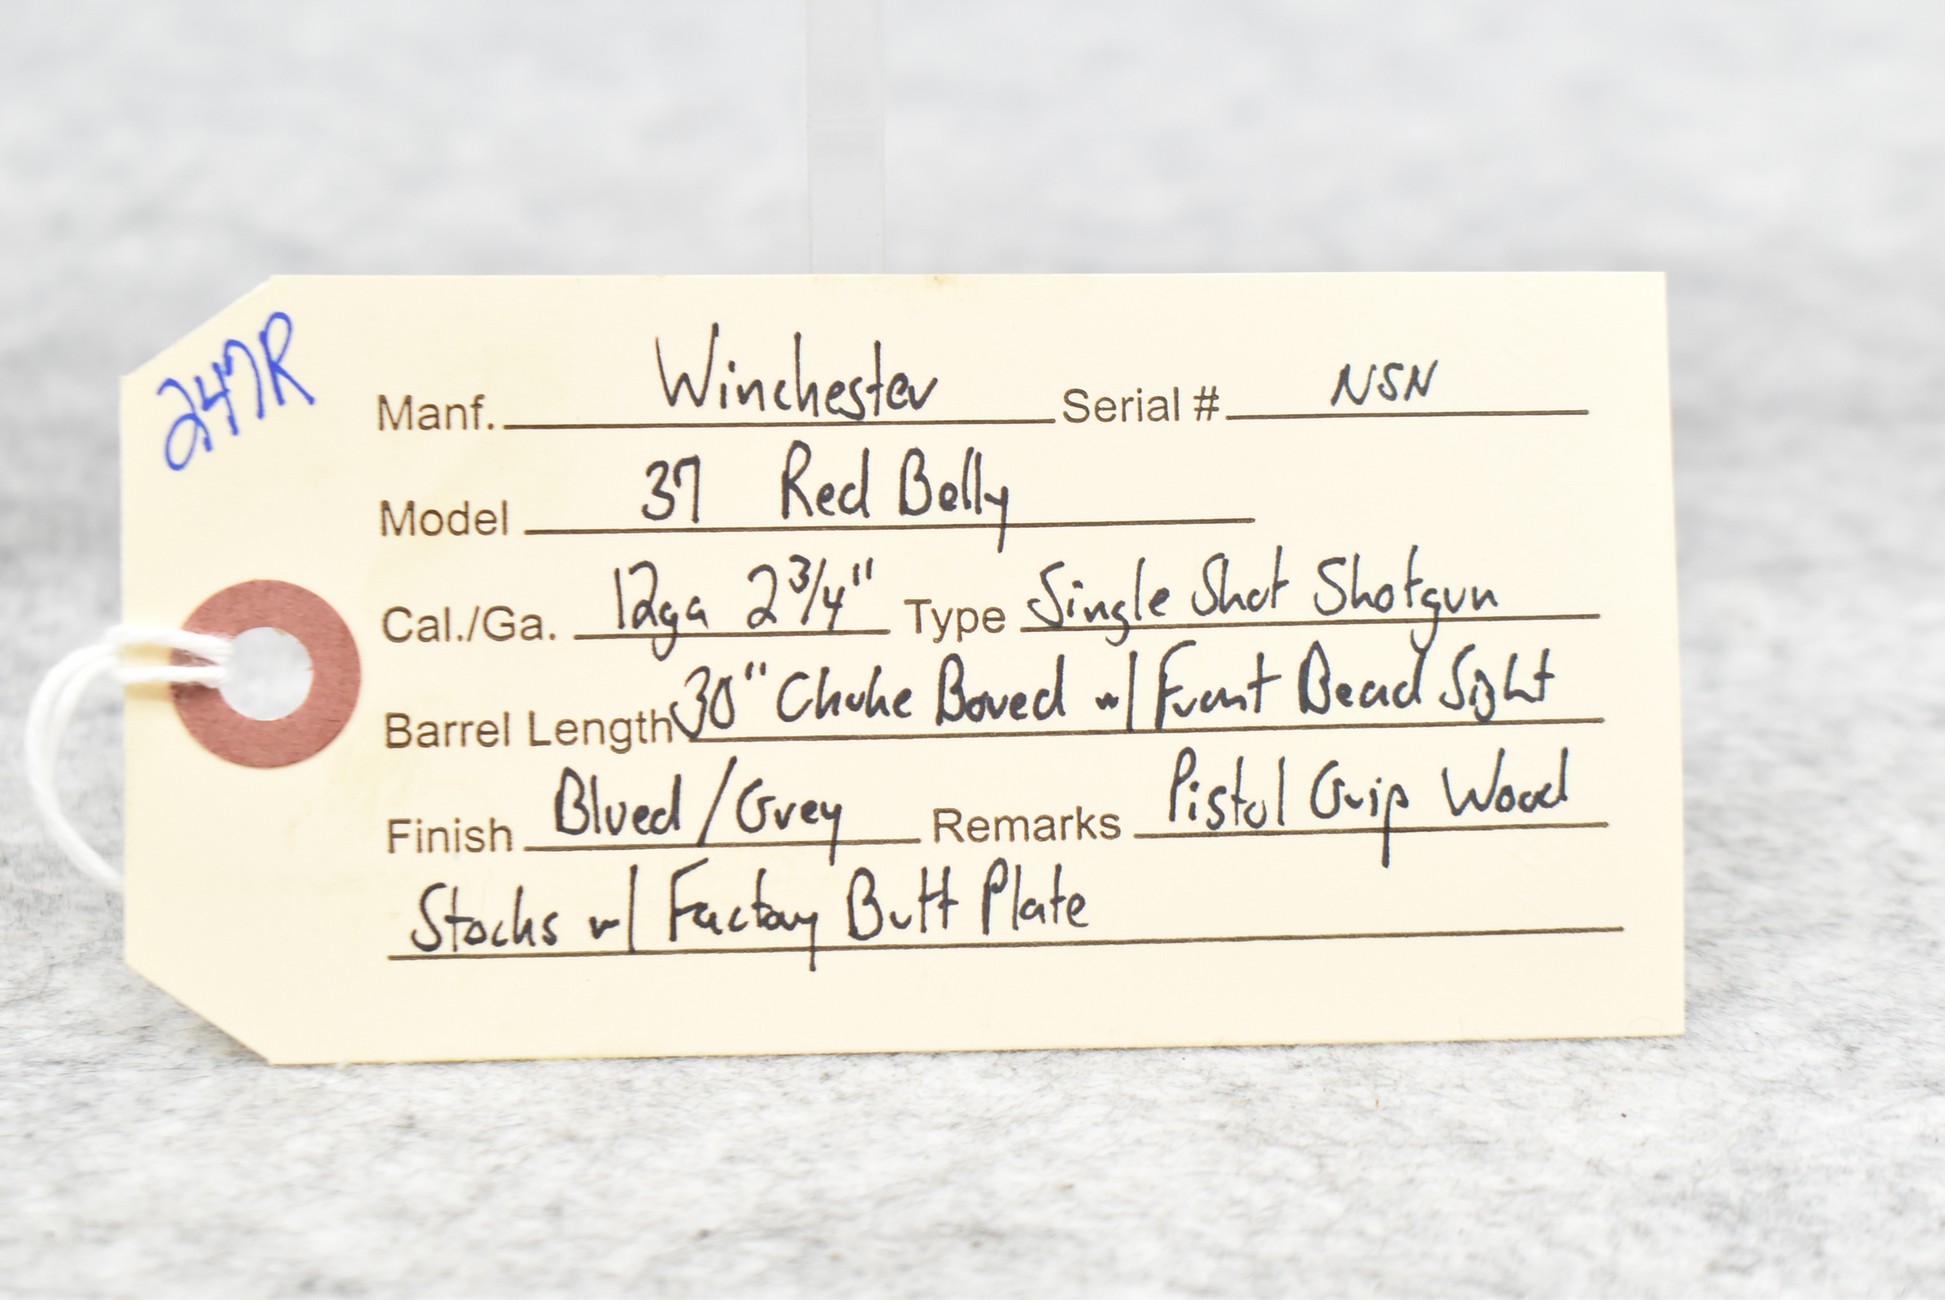 247R
Manf. Winchester Serial # NSN
Model 37 Red Belly
Cal./Ga. 12ga 2 3/4" Type Single Shot Shotgun
Barrel Length 30" Choke Bored w/ Front Bead Sight
Finish Blued/Grey Remarks Pistol Grip Wood
Stocks w/ Factory Butt Plate